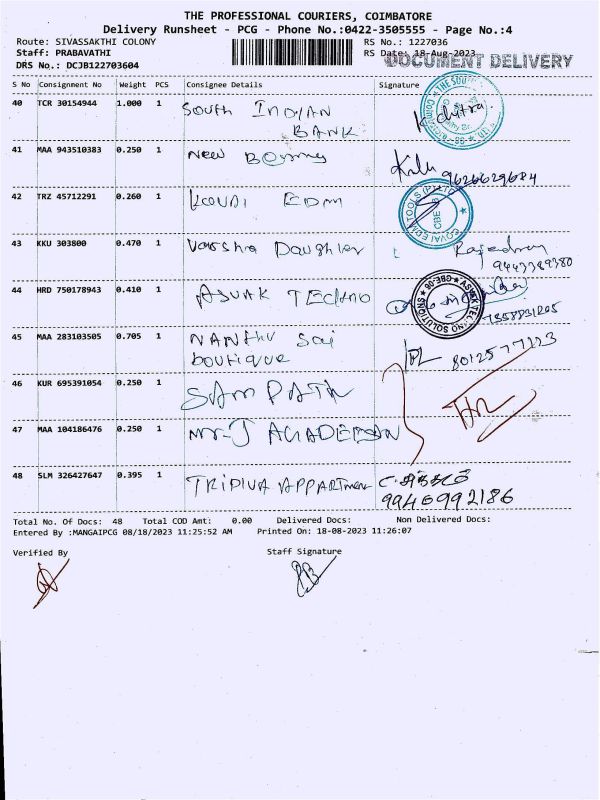 THE PROFESSIONAL COURIERS, COIMBATORE
Delivery Runsheet - PCG - Phone No.:0422-3505555 - Page No.:4
Route: SIVASSAKTHI COLONY RS No.: 1227036
Staff: PRABAVATHI RS Date: 18-Aug-2023
DOCUMENT DELIVERY
DRS No.: DCJB122703604
S No Consignment No Weight PCS Consignee Details Signature
40 TCR 30154944 1.000 1 South INDIAN BANK K. chitra
41 MAA 943510383 0.250 1 New Bombay 9626629684
42 TRZ 45712291 0.260 1 KOVAI EDM
COVAI EDMTOOLS (P) LTD CBE
43 KKU 303800 0.470 1 Varsha Daughter 9443389380
44 HRD 750178943 0.410 1 ASVAK TECHNO
ASVAK TECHNO SOLUTIONS CBE-06
7558831205
45 MAA 283103505 0.705 1 NANTHU Sai boutique 8012577123
46 KUR 695391054 0.250 1 SAMPATH
47 MAA 104186476 0.250 1 Mr-J
48 SLM 326427647 0.395 1 TRIDIVA APPARTment
9940992186
Total No. Of Docs: 48 Total COD Amt: 0.00 Delivered Docs: Non Delivered Docs:
Entered By :MANGAIPCG 08/18/2023 11:25:52 AM Printed On: 18-08-2023 11:26:07
Verified By Staff Signature